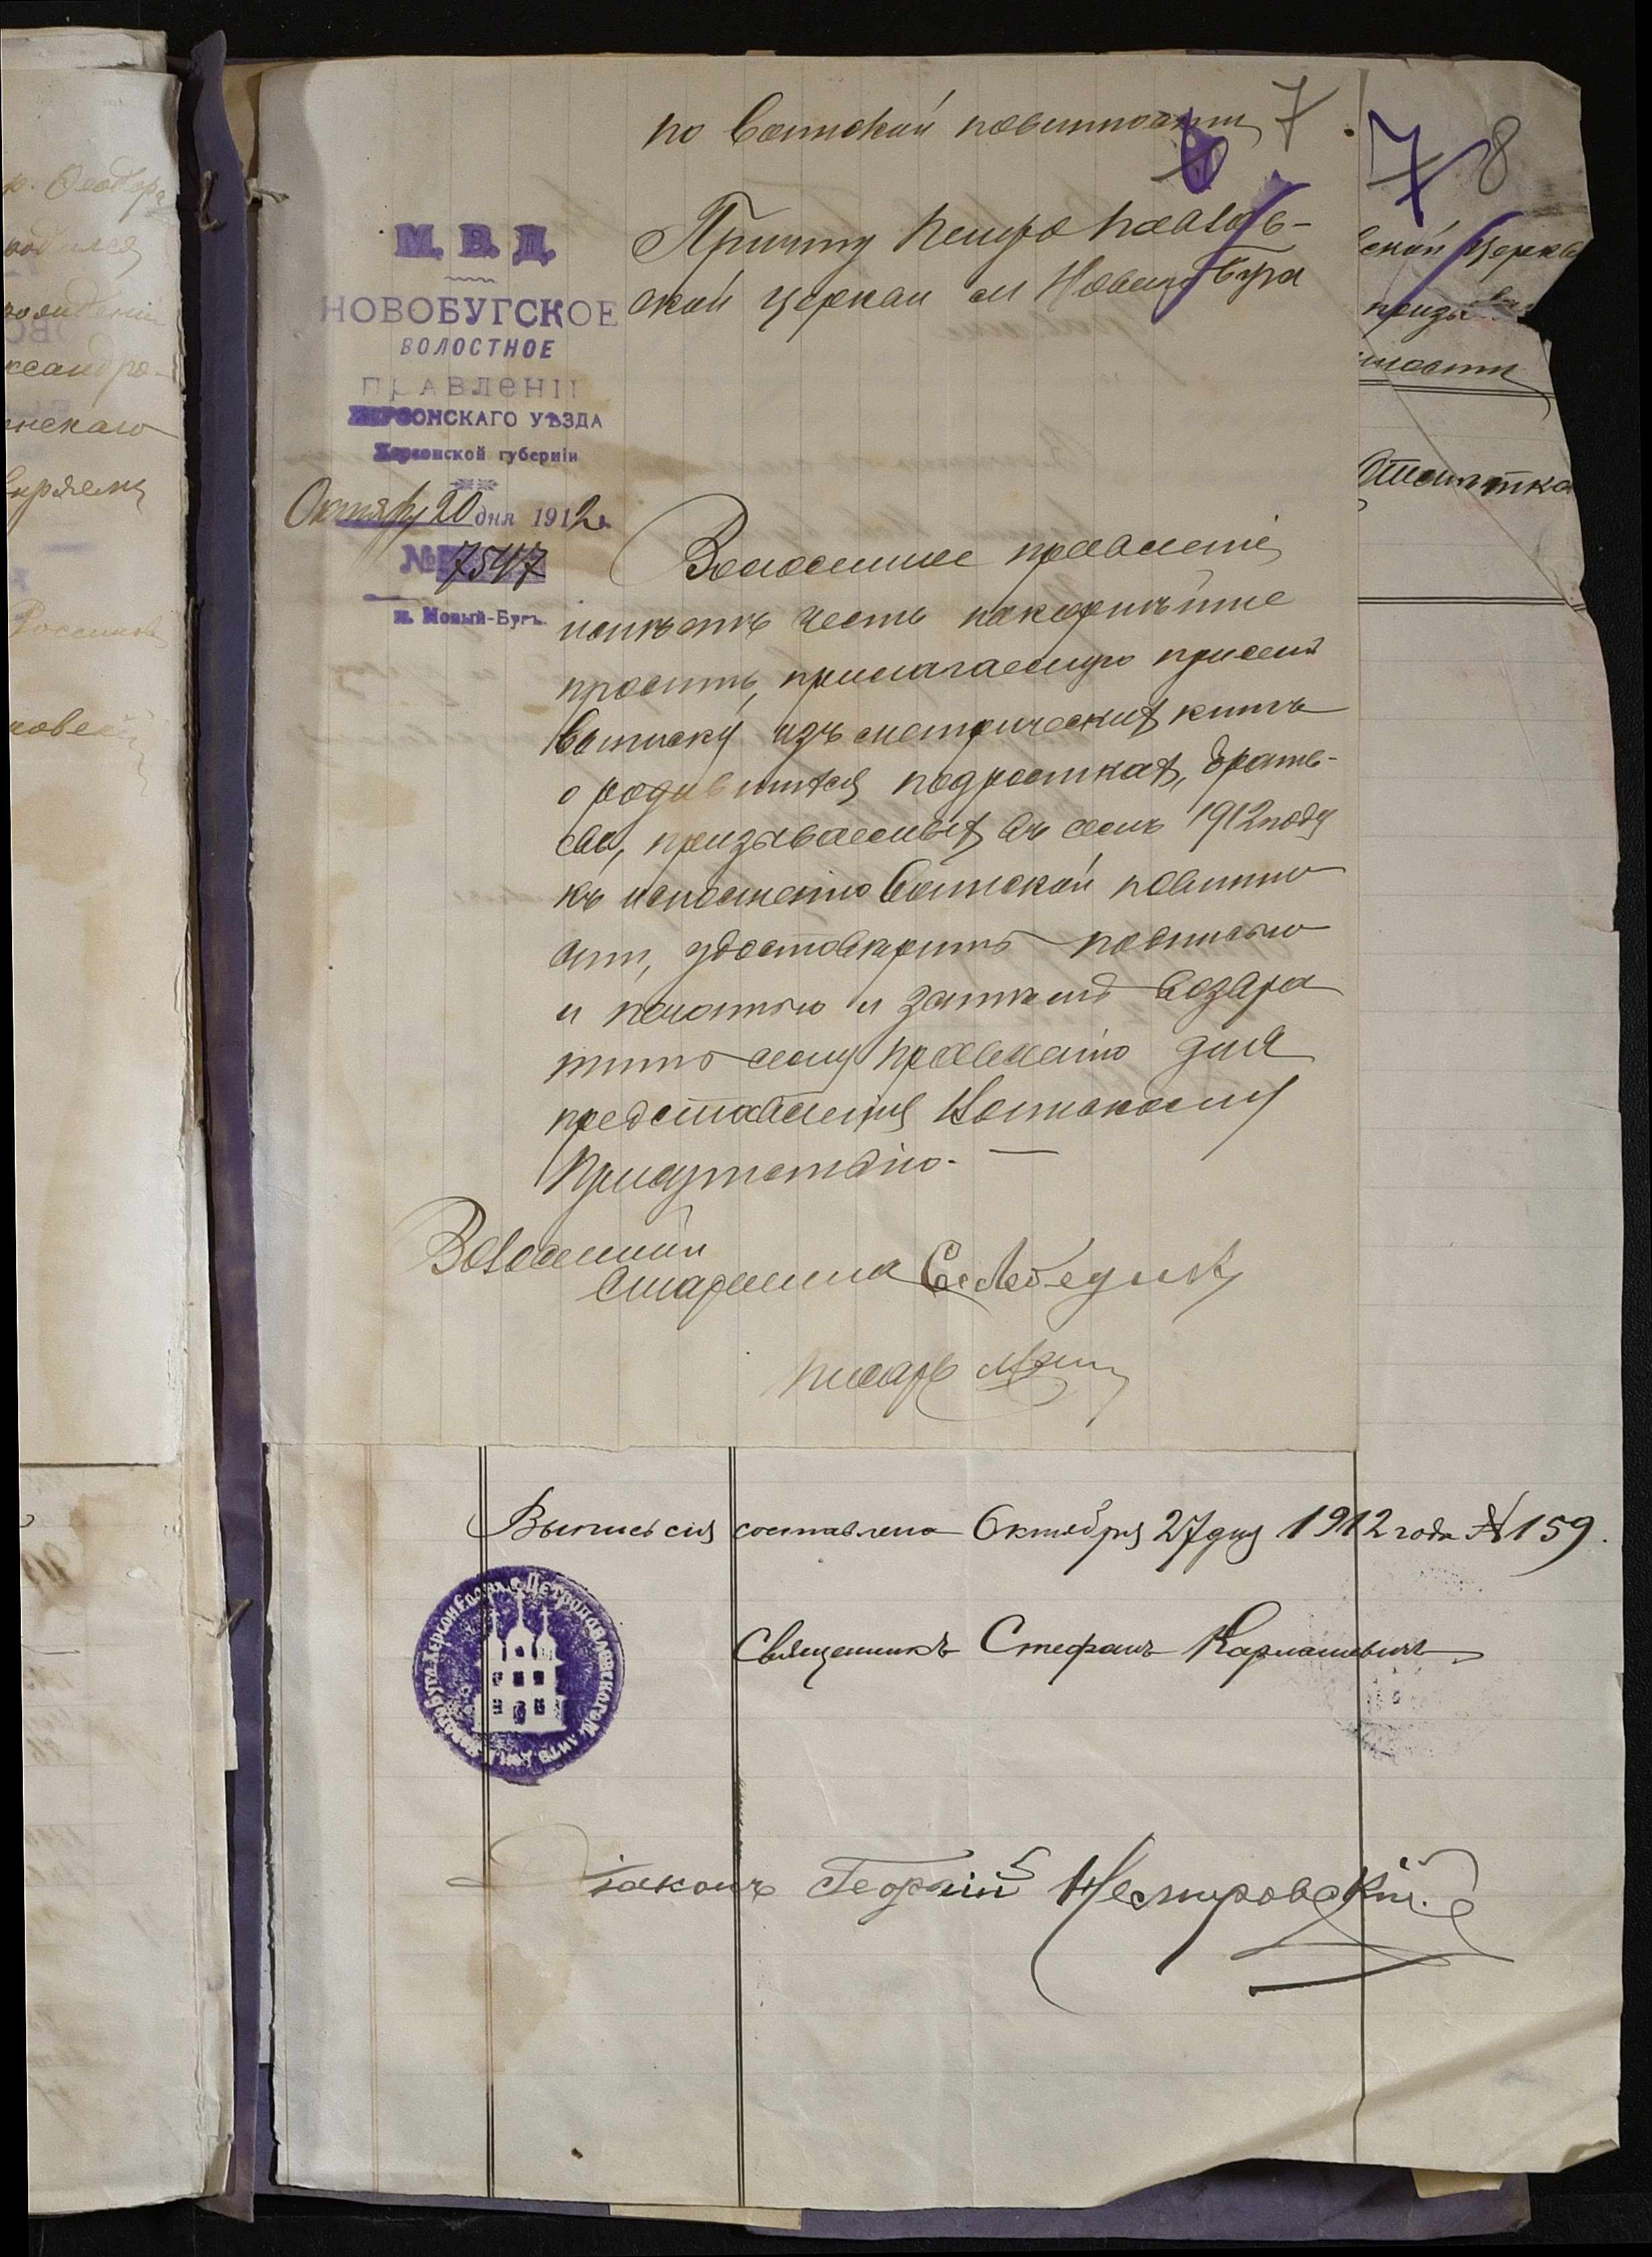 по воинской повинности 7
6
7 8
Причту Петро Павлов-
ской церкви м Новаго Буга
М. В. Д.
НОВОБУГСКОЕ
ВОЛОСТНОЕ
ПРАВЛЕНІЕ
ХЕРСОНСКАГО УѢЗДА
Херсонской губерніи
Октября 20 дня 1912 г.
№ 7547
м. Новый-Бугъ.
Волостное правленіе
имѣетъ честь покорнѣйше
просить, прилагаемую при семъ
выписку изъ метрическихъ книгъ
о родившихся подросткахъ,
призываемыхъ въ семъ 1912 году
къ исполненію воинской повинно
сти, удостовѣрить подписью
и печатью и затѣмъ возвра
тить сему правленію для
представленія Воинскому
Присутствію. —
Волостной
Старшина
Писарь
ской церкв
призы
нности
Выпись сія составлена Октября 27 дня 1912 года № 159.
Священникъ Стефанъ Кармашевичъ
Діаконъ Георгій Нестеровскій.
р. Ѳеодора
ксандро-
инскаго